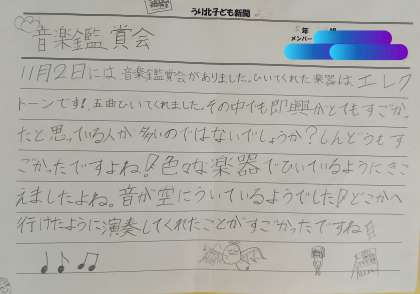 うり北子ども新聞
年 組
メンバー
音楽鑑賞会
11月2日には音楽鑑賞会がありました。ひいてくれた楽器はエレク
トーンです!、五曲ひいてくれました。その中でも即興がとてもすごかっ
たと思っている人が多いのではないでしょうか?しんどうもす
ごかったですよね!色々な楽器でひいているようにきこ
えましたよね。音が空にういているようでした!どこかへ
行けたように演奏してくれたことがすごかったですね